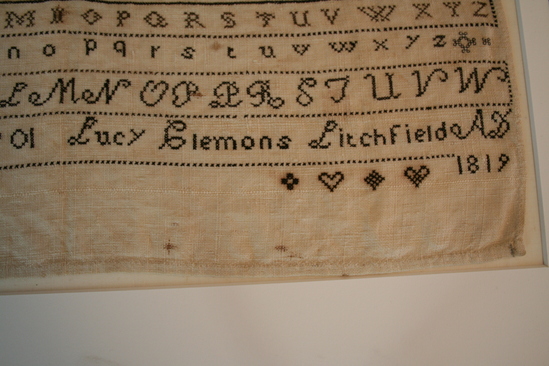 M N O P Q R S T U V W X Y Z
n o p q r s t u v w x y z
L M N O P Q R S T U V W
Ol Lucy Clemons Litchfield AD
1819